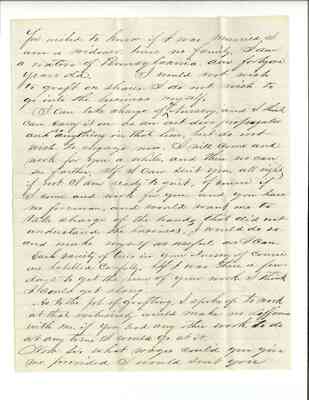 You wished to know if I was married, I
am a widower have no family, I am
a native of Pennsylvania am forty
years old. I would not wish
to graft on shares. I do not wish to
go into the business myself,
I can take charge of Nursery and I think
can carry it on as an out door propagator
and anything in that line, but do not
wish to engage now. I will come and
work for you a while, and then we can
see farther. If I can suit you all right
if not I am ready to quit, of course if
I come and work for you and you have
no foreman, and would want me to
take charge of the hands, that did not
understand the business, I would do so
and make myself as useful as I can.
Each variety of trees in your Nursery of course
are labelled carefully. If I was there a few
days to get the run of your work I think
I could get along
As to the job of grafting, I spoke of to work
at that exclusively would make no difference
with me, if you had any other work to do
at any time I would go at it.
Now Sir what wages could you give
me provided I would suit you